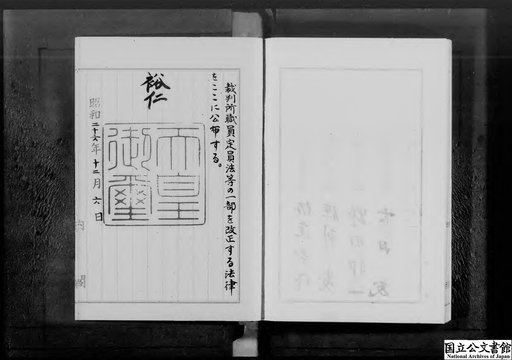 裁判所職員定員法等の一部を改正する法律
をここに公布する。
裕仁
天皇
御璽
昭和二十六年十二月六日
内閣
国立公文書館
National Archives of Japan